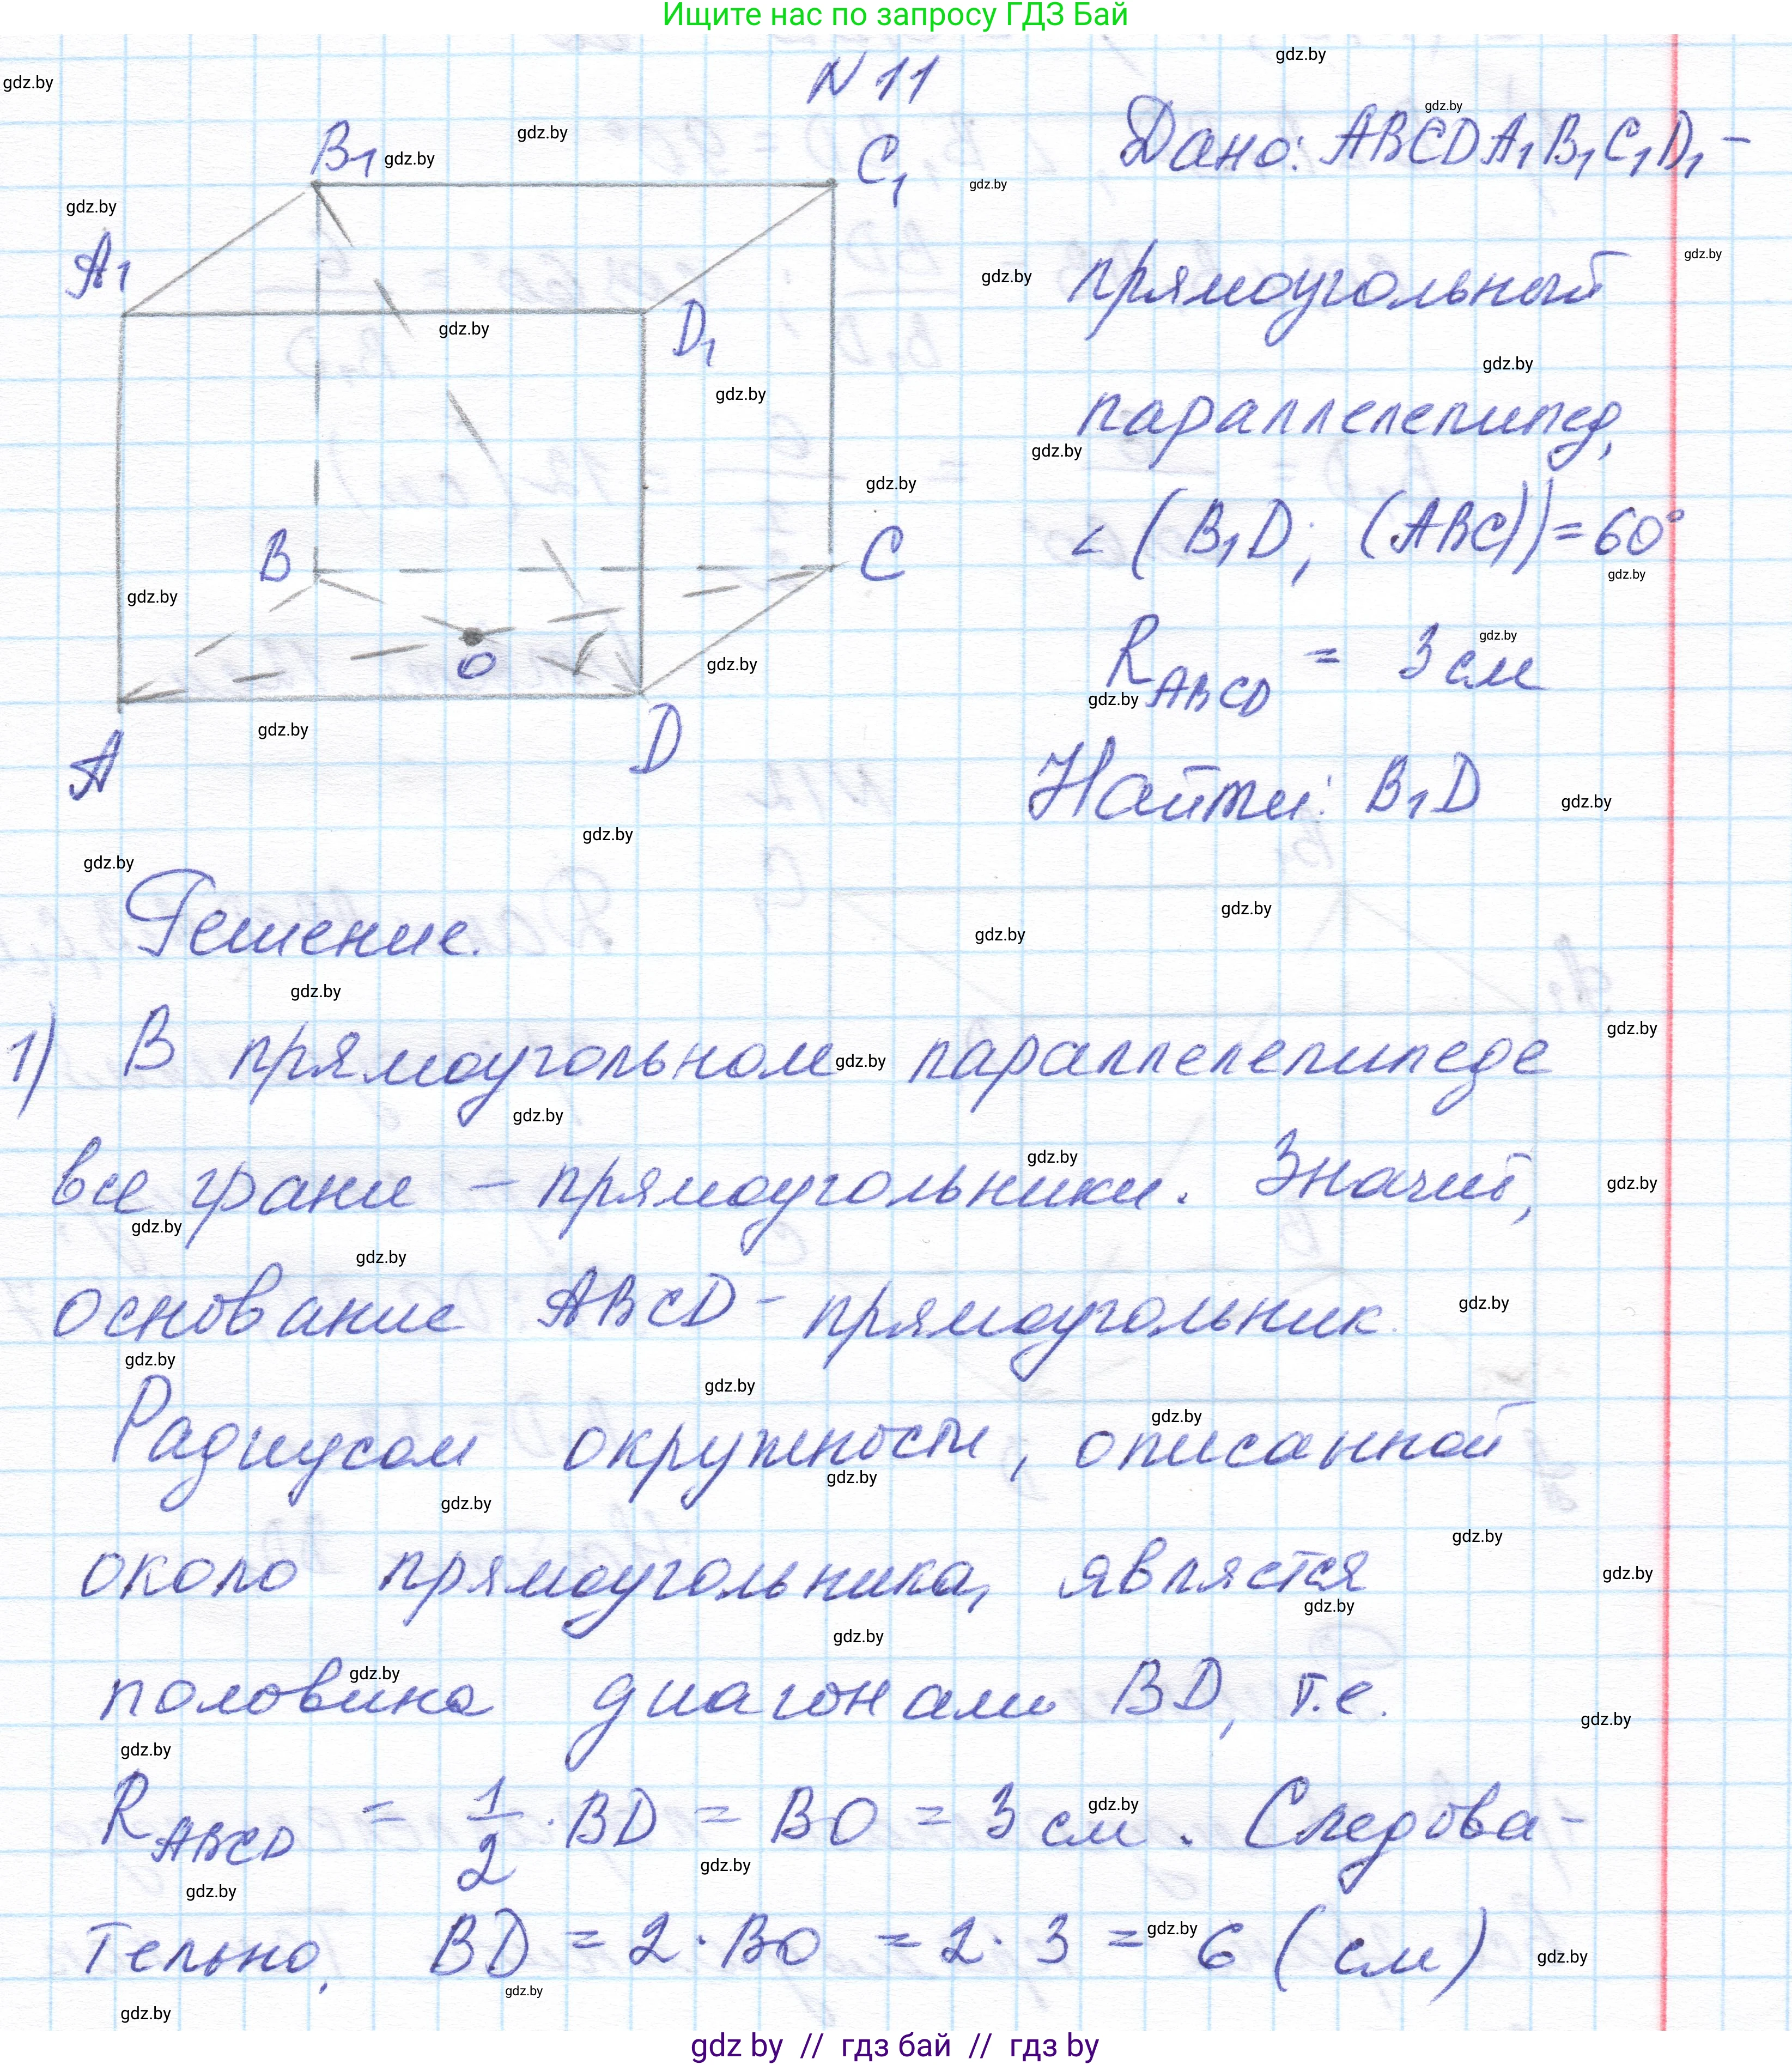 Ищите нас по запросу ГДЗ Бай
N 11
Дано: ABCDA₁B₁C₁D₁ –
прямоугольный
параллелепипед,
∠ (B₁D; (ABC)) = 60°
R_ABCD = 3 см
Найти: B₁D
B₁
C₁
A₁
D₁
B
C
O
A
D
Решение.
1) В прямоугольном параллелепипеде
все грани – прямоугольники. Значит,
основание ABCD – прямоугольник.
Радиусом окружности, описанной
около прямоугольника, является
половина диагонали BD, т.е.
R_ABCD = 1/2 · BD = BO = 3 см. Следова-
тельно, BD = 2 · BO = 2 · 3 = 6 (см)
gdz.by
gdz by // гдз бай // гдз by